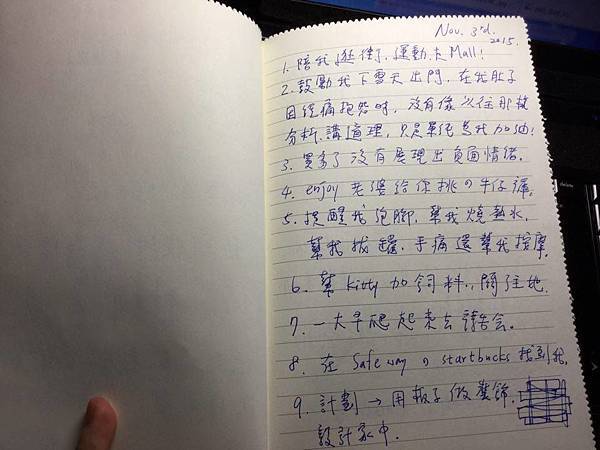 Nov. 3rd.
2015.
1. 陪我逛街、運動、去Mall!
2. 鼓勵我下雪天出門, 在我肚子
因經痛抱怨時, 沒有像以往那樣
分析、講道理, 只是單純為我加油!
3. 買多了沒有展現出負面情緒.
4. enjoy 老婆給你挑の牛仔褲.
5. 提醒我泡腳, 幫我燒熱水,
幫我拔罐, 手痛還幫我按摩.
6. 幫 Kitty 加飼料,
7. 一大早爬起來去禱告会.
8. 在 Safeway の startbucks 找到我.
9. 計劃 → 用板子做裝飾.
設計家中.